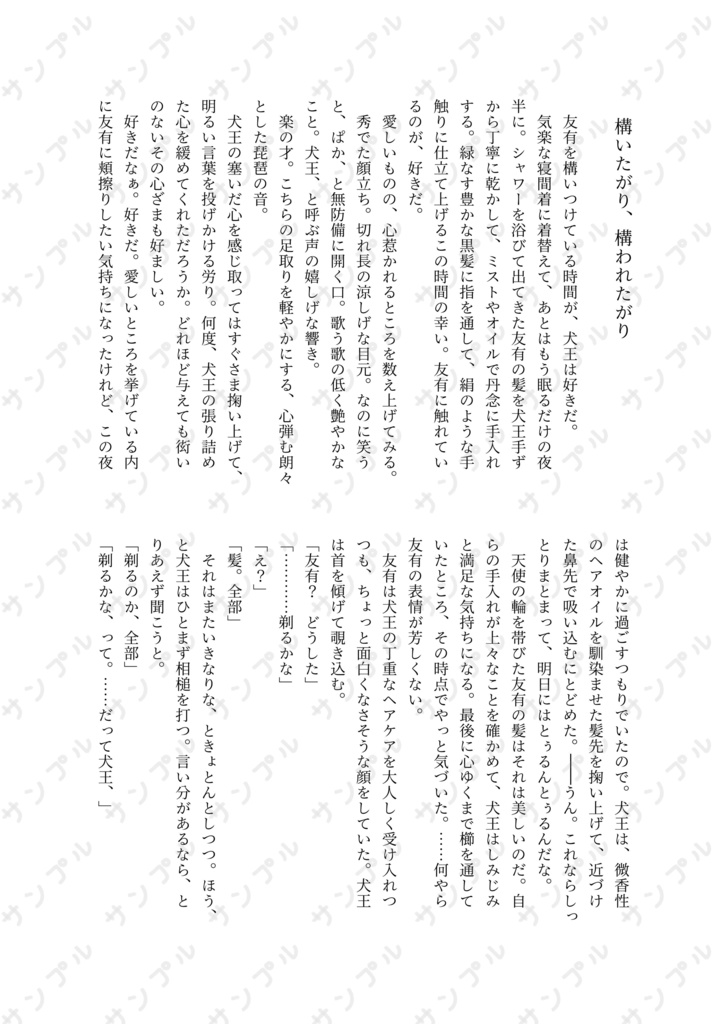 構いたがり、構われたがり
友有を構いつけている時間が、犬王は好きだ。
気楽な寝間着に着替えて、あとはもう眠るだけの夜
半に。シャワーを浴びて出てきた友有の髪を犬王手ず
から丁寧に乾かして、ミストやオイルで丹念に手入れ
する。緑なす豊かな黒髪に指を通して、絹のような手
触りに仕立て上げるこの時間の幸い。友有に触れてい
るのが、好きだ。
愛しいものの、心惹かれるところを数え上げてみる。
秀でた顔立ち。切れ長の涼しげな目元。なのに笑う
と、ぱか、と無防備に開く口。歌う歌の低く艶やかな
こと。犬王、と呼ぶ声の嬉しげな響き。
楽の才。こちらの足取りを軽やかにする、心弾む朗々
とした琵琶の音。
犬王の塞いだ心を感じ取ってはすぐさま掬い上げて、
明るい言葉を投げかける労り。何度、犬王の張り詰め
た心を緩めてくれただろうか。どれほど与えても衒い
のないその心ざまも好ましい。
好きだなぁ。好きだ。愛しいところを挙げている内
に友有に頬擦りしたい気持ちになったけれど、この夜
は健やかに過ごすつもりでいたので。犬王は、微香性
のヘアオイルを馴染ませた髪先を掬い上げて、近づけ
た鼻先で吸い込むにとどめた。――うん。これならしっ
とりまとまって、明日にはとぅるんとぅるんだな。
天使の輪を帯びた友有の髪はそれは美しいのだ。自
らの手入れが上々なことを確かめて、犬王はしみじみ
と満足な気持ちになる。最後に心ゆくまで櫛を通して
いたところ、その時点でやっと気づいた。……何やら
友有の表情が芳しくない。
友有は犬王の丁重なヘアケアを大人しく受け入れつ
つも、ちょっと面白くなさそうな顔をしていた。犬王
は首を傾げて覗き込む。
「友有？　どうした」
「…………剃るかな」
「え？」
「髪。全部」
それはまたいきなりな、ときょとんとしつつ。ほう、
と犬王はひとまず相槌を打つ。言い分があるなら、と
りあえず聞こうと。
「剃るのか、全部」
「剃るかな、って。……だって犬王、」
サンプル